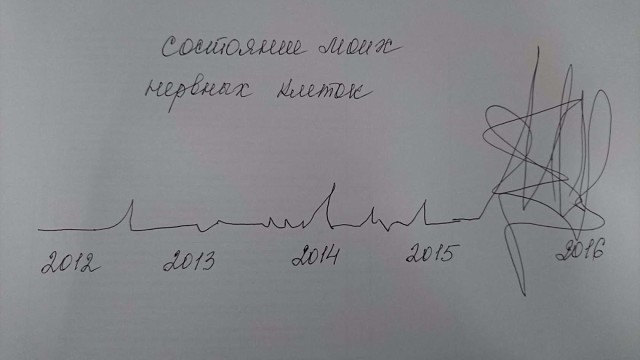 состояние моих
нервных клеток
2012 2013 2014 2015 2016